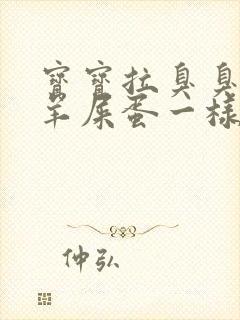 寶寶拉臭臭
羊屎蛋一樣
仲弘